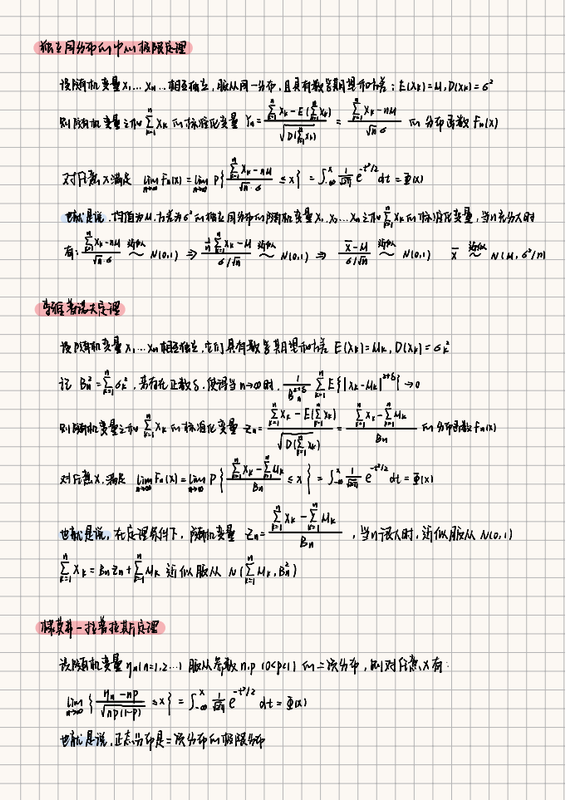 独立同分布的中心极限定理
设随机变量 X₁,…Xₙ…相互独立,服从同一分布,且具有数学期望和方差:E(Xₖ)=μ, D(Xₖ)=σ²
则随机变量之和 ∑ₖ₌₁ⁿ Xₖ 的标准化变量 Yₙ = (∑ₖ₌₁ⁿ Xₖ - E(∑ₖ₌₁ⁿ Xₖ)) / √(D(∑ₖ₌₁ⁿ Xₖ)) = (∑ₖ₌₁ⁿ Xₖ - nμ) / (√n σ) 的分布函数 Fₙ(x)
对任意 x 满足 lim n→∞ Fₙ(x) = lim n→∞ P{ (∑ₖ₌₁ⁿ Xₖ - nμ) / (√n σ) ≤ x } = ∫₋∞ˣ 1/√2π e^(-t²/2) dt = Φ(x)
也就是说,均值为μ,方差为σ²的独立同分布的随机变量 X₁,X₂,…Xₙ 之和 ∑ₖ₌₁ⁿ Xₖ 的标准化变量,当n充分大时
有: (∑ₖ₌₁ⁿ Xₖ - nμ) / (√n σ) 近似~ N(0,1) ⇒ (1/n ∑ₖ₌₁ⁿ Xₖ - μ) / (σ/√n) 近似~ N(0,1) ⇒ (X̄ - μ) / (σ/√n) 近似~ N(0,1) X̄ 近似~ N(μ, σ²/n)
李雅普诺夫定理
设随机变量 X₁,…Xₙ 相互独立,它们具有数学期望和方差 E(Xₖ)=μₖ, D(Xₖ)=σₖ²
记 Bₙ² = ∑ₖ₌₁ⁿ σₖ²,若存在正数δ,使得当 n→∞ 时, 1/Bₙ^(2+δ) ∑ₖ₌₁ⁿ E{|Xₖ-μₖ|^(2+δ)} → 0
则随机变量之和 ∑ₖ₌₁ⁿ Xₖ 的标准化变量 Zₙ = (∑ₖ₌₁ⁿ Xₖ - E(∑ₖ₌₁ⁿ Xₖ)) / √(D(∑ₖ₌₁ⁿ Xₖ)) = (∑ₖ₌₁ⁿ Xₖ - ∑ₖ₌₁ⁿ μₖ) / Bₙ 的分布函数 Fₙ(x)
对任意x,满足 lim n→∞ Fₙ(x) = lim n→∞ P{ (∑ₖ₌₁ⁿ Xₖ - ∑ₖ₌₁ⁿ μₖ) / Bₙ ≤ x } = ∫₋∞ˣ 1/√2π e^(-t²/2) dt = Φ(x)
也就是说,在定理条件下,随机变量 Zₙ = (∑ₖ₌₁ⁿ Xₖ - ∑ₖ₌₁ⁿ μₖ) / Bₙ ,当n很大时,近似服从 N(0,1)
∑ₖ₌₁ⁿ Xₖ = BₙZₙ + ∑ₖ₌₁ⁿ μₖ 近似服从 N(∑ₖ₌₁ⁿ μₖ, Bₙ²)
棣莫弗-拉普拉斯定理
设随机变量 ηₙ(n=1,2,…) 服从参数 n,p (0<p<1) 的二项分布,则对任意x有:
lim n→∞ { (ηₙ - np) / √(np(1-p)) ≤ x } = ∫₋∞ˣ 1/√2π e^(-t²/2) dt = Φ(x)
也就是说,正态分布是二项分布的极限分布